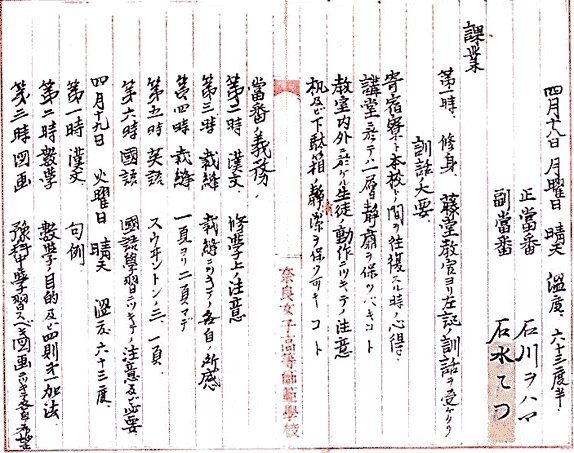 四月十八日 月曜日 晴天 溫度、六十三度半
正當番 石川ヲハマ
副當番 石水てつ
課業
第一時 修身 藤堂教官ヨリ左記ノ訓話ヲ受ケタリ
訓話ノ大要
寄宿寮ト本校トノ間ヲ往復スル時ノ心得
講堂ニ於テハ一層静肅ヲ保ツベキコト
教室内外ニ於ケル生徒ノ動作ニツキテノ注意
机及ビ下駄箱ノ静潔ヲ保ツベキコト
當番ノ義務
第二時 漢文 修學上ノ注意
第三時 裁縫 裁縫ニツキテノ各自ノ所感
第四時 裁縫 一頁ヨリ二頁マデ
第五時 英語 スウヰントン、三、一頁
第六時 國語 國語學習ニツキテノ注意及ビ必要
奈良女子高等師範學校
四月十九日 火曜日 晴天 溫度 六十三度
第一時 漢文 句例
第二時 數學 數學ノ目的及ビ四則第一加法
第三時 図画 豫科中學習スベキ図画ニツキテ各自ノ希望